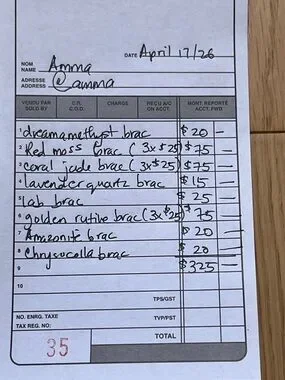 DATE April 17/26
NOM
NAME Amma
ADRESSE
ADDRESS @amma
VENDU PAR
SOLD BY
C.R.
C.O.D.
CHARGE
REÇU A/C
ON ACCT.
MONT. REPORTÉ
ACCT. FWD.
1 dreamamethyst brac $20 —
2 Red moss brac (3x$25) $75 —
3 coral jade brac (3x$25) $75 —
4 lavender quartz brac $15 —
5 lab brac $25 —
6 golden rutile brac (3x$25) $75 —
7 Amazonite brac $20 —
8 Chrysocolla brac $20 —
9 $325 —
10
TPS/GST
NO. ENRG. TAXE
TAX REG. NO:
TVP/PST
35
TOTAL